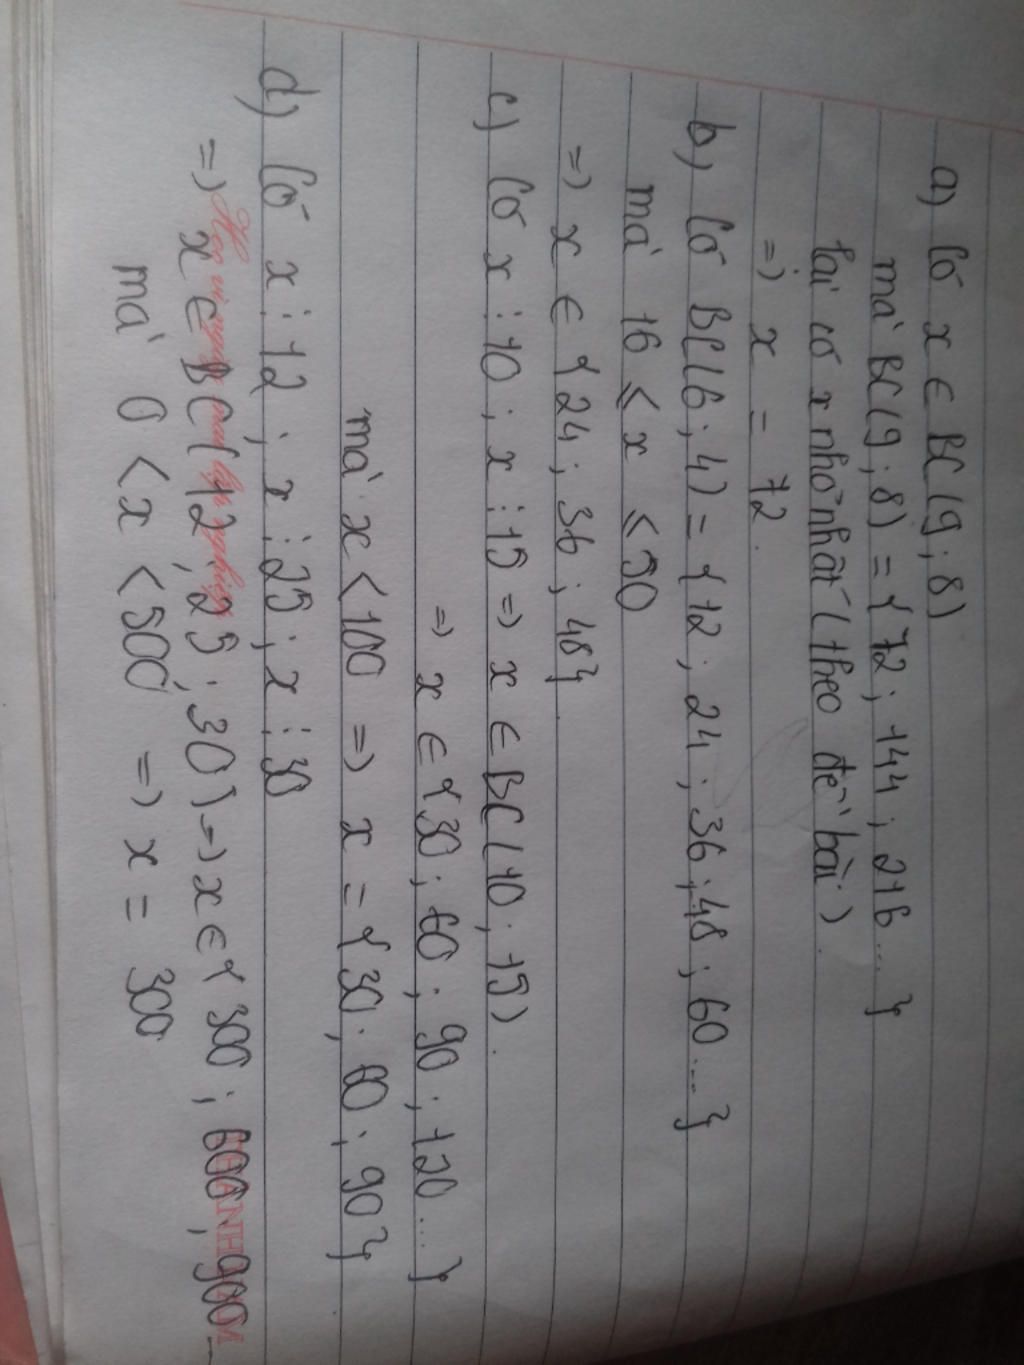 a) Có x ∈ BC(9; 8)
mà BC(9; 8) = {72; 144; 216...}
lại có x nhỏ nhất (theo đề bài).
=> x = 72.
b) Có BC(6; 4) = {12; 24; 36; 48; 60...}
mà 16 ≤ x ≤ 50
=> x ∈ {24; 36; 48}.
c) Có x ⋮ 10; x ⋮ 15 => x ∈ BC(10; 15).
=> x ∈ {30; 60; 90; 120...}
mà x < 100 => x = {30; 60; 90}.
d) Có x ⋮ 12; x ⋮ 25; x ⋮ 30
=> x ∈ BC(12; 25; 30) => x ∈ {300; 600; 900...
mà 0 < x < 500 => x = 300